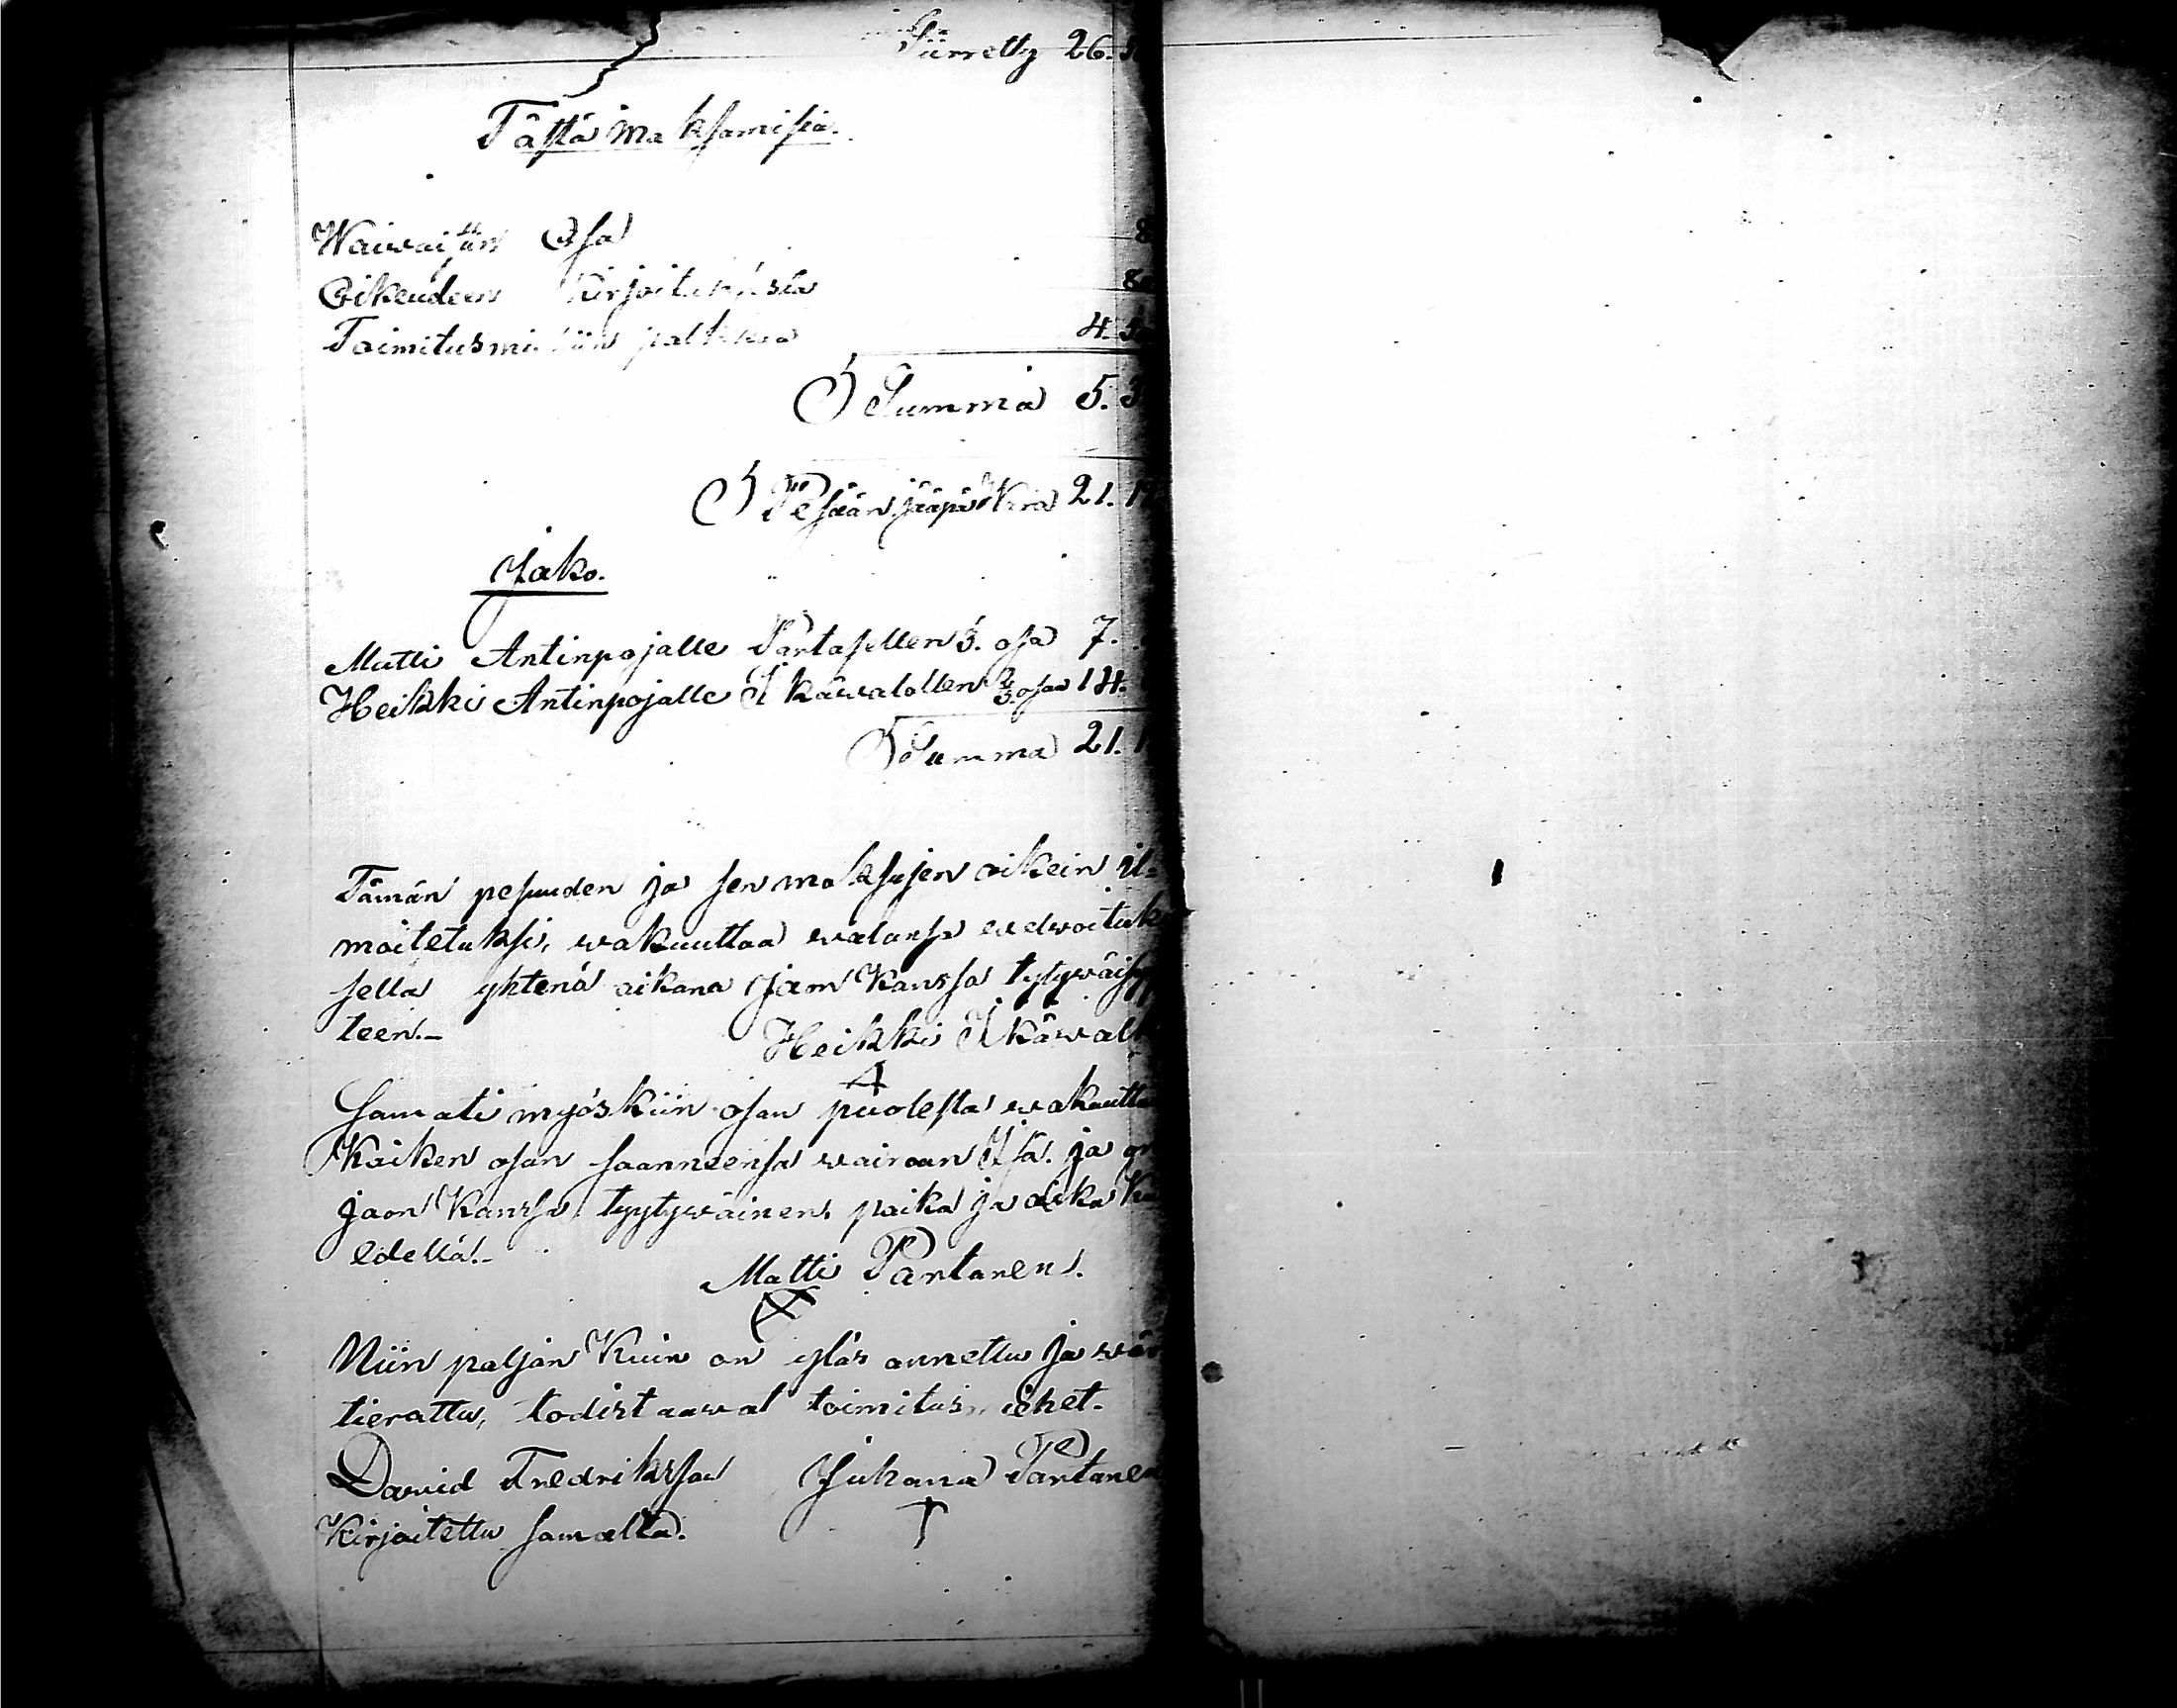 Siirretty 26.
Tästä maksamisia.
Waiwaisten Osa 8
Oikeuden Kirjoituksista 8
Toimitusmiesten palkkaa 4. 5
Summa 5. 3
Pesään jääpi Kra 21. 1
Jako.
Matti Antinpojalle Partasellen 3. osa 7.
Heikki Antinpojalle Ikäwalollen 2/3 osaa 14.
Summa 21. 1
Tämän pesuuden ja sen maksujen oikein il=
moitetuksi, wakuuttaa walansa welwoituk
sella yhtenä aikana Jaon Kanssa tytywäisyy
teen.-
Heikki Ikäwal
Samati myöskiin osan puolesta wakuutta
Kaiken osan saanneensa wainaan Isä. ja on
jaon Kanssa tyytywäinen, paika ja aika Ku
edellä.-
Matti Partanen.
Niin paljon Kuin on ylös annettu ja wär
tierattu, todistaawat toimitusmiehet.
David Fredriksson Juhana Partanen
Kirjoitettu samalta.